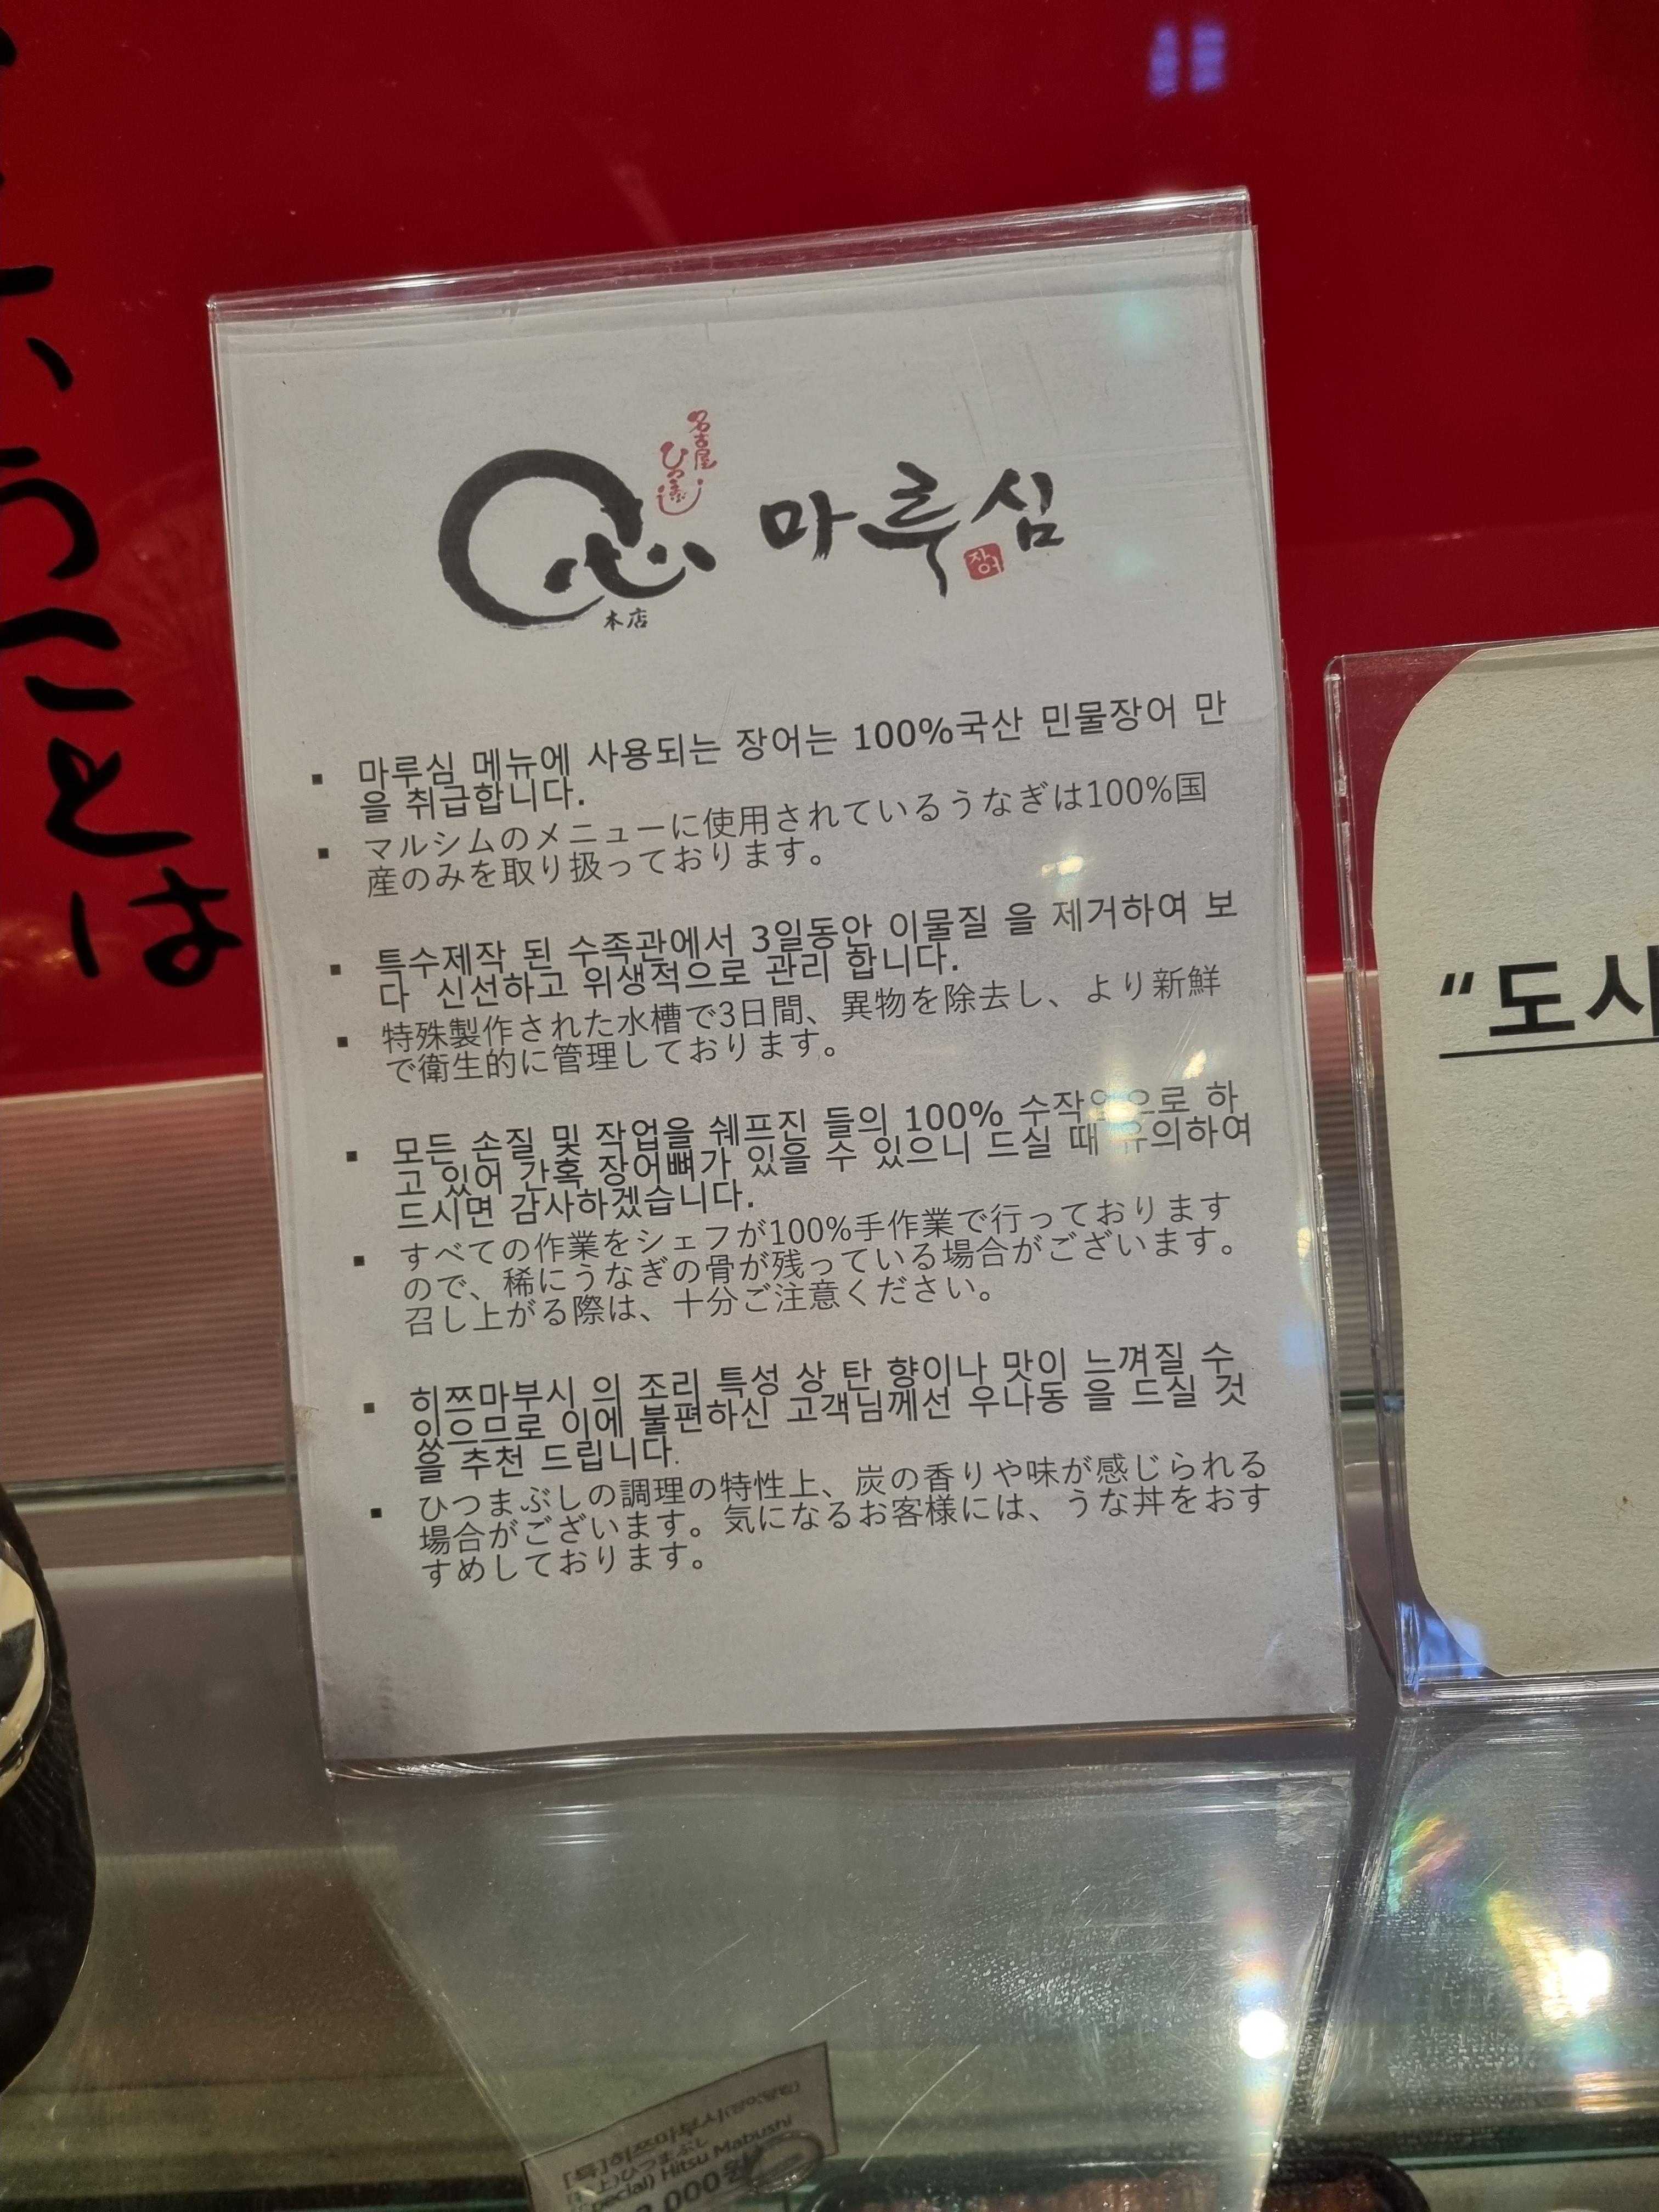 うことは
名古屋
ひつまぶし
心
本店
마루심
장어
▪ 마루심 메뉴에 사용되는 장어는 100%국산 민물장어 만
을 취급합니다.
▪ マルシムのメニューに使用されているうなぎは100%国
産のみを取り扱っております。
▪ 특수제작 된 수족관에서 3일동안 이물질 을 제거하여 보
다 신선하고 위생적으로 관리 합니다.
▪ 特殊製作された水槽で3日間、異物を除去し、より新鮮
で衛生的に管理しております。
▪ 모든 손질 및 작업을 쉐프진 들의 100% 수작업으로 하
고 있어 간혹 장어뼈가 있을 수 있으니 드실 때 유의하여
드시면 감사하겠습니다.
▪ すべての作業をシェフが100%手作業で行っております
ので、稀にうなぎの骨が残っている場合がございます。
召し上がる際は、十分ご注意ください。
▪ 히쯔마부시 의 조리 특성 상 탄 향이나 맛이 느껴질 수
있으므로 이에 불편하신 고객님께선 우나동 을 드실 것
을 추천 드립니다.
▪ ひつまぶしの調理の特性上、炭の香りや味が感じられる
場合がございます。気になるお客様には、うな丼をおす
すめしております。
“도시
[특]히쯔마부시
ひつまぶし
Hitsu Mabushi
000원